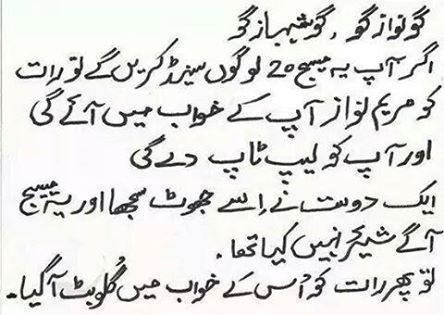 گو نواز گو ، گو شہباز گو
اگر آپ یہ میسج 20 لوگوں سینڈ کریں گے تو رات
کو مریم نواز آپ کے خواب میں آئے گی
اور آپ کو لیپ ٹاپ دے گی
ایک دوست نے اِسے جھوٹ سمجھا اور یہ میسج
آگے شیئر نہیں کیا تھا ۔
تو پھر رات کو اُس کے خواب میں گُلو بٹ آ گیا ۔